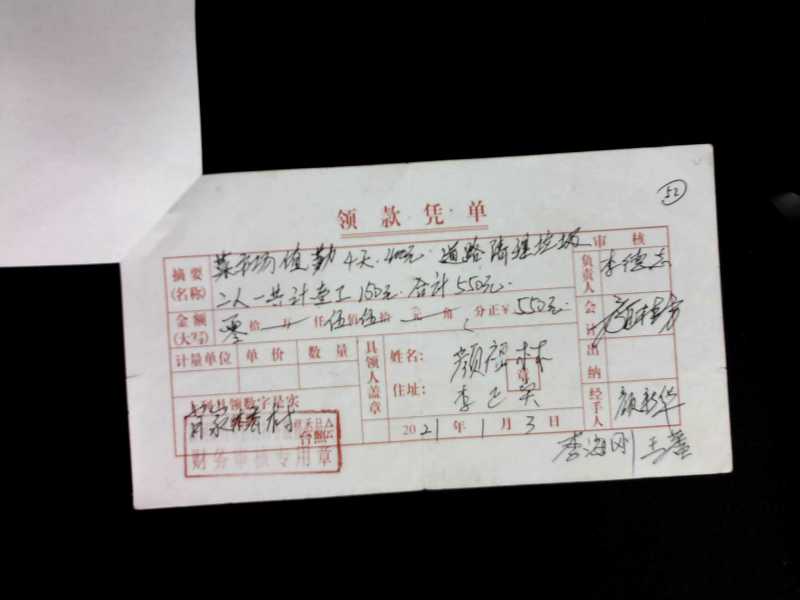 52
领款凭单
摘要(名称) 菜市场值勤4天.400元.道路清理垃圾
二人一共计壹工150元.合计550元.
审核
负责人 李德志
金额(大写) 零拾万仟伍佰伍拾元角分正¥550元.
会计
计量单位 单价 数量
具领人盖章
姓名: 颜 林
章
住址: 李
出纳
上列具领数字是实
村
财务审核专用章
2021年1月3日
经手人 颜新华
李海刚 王